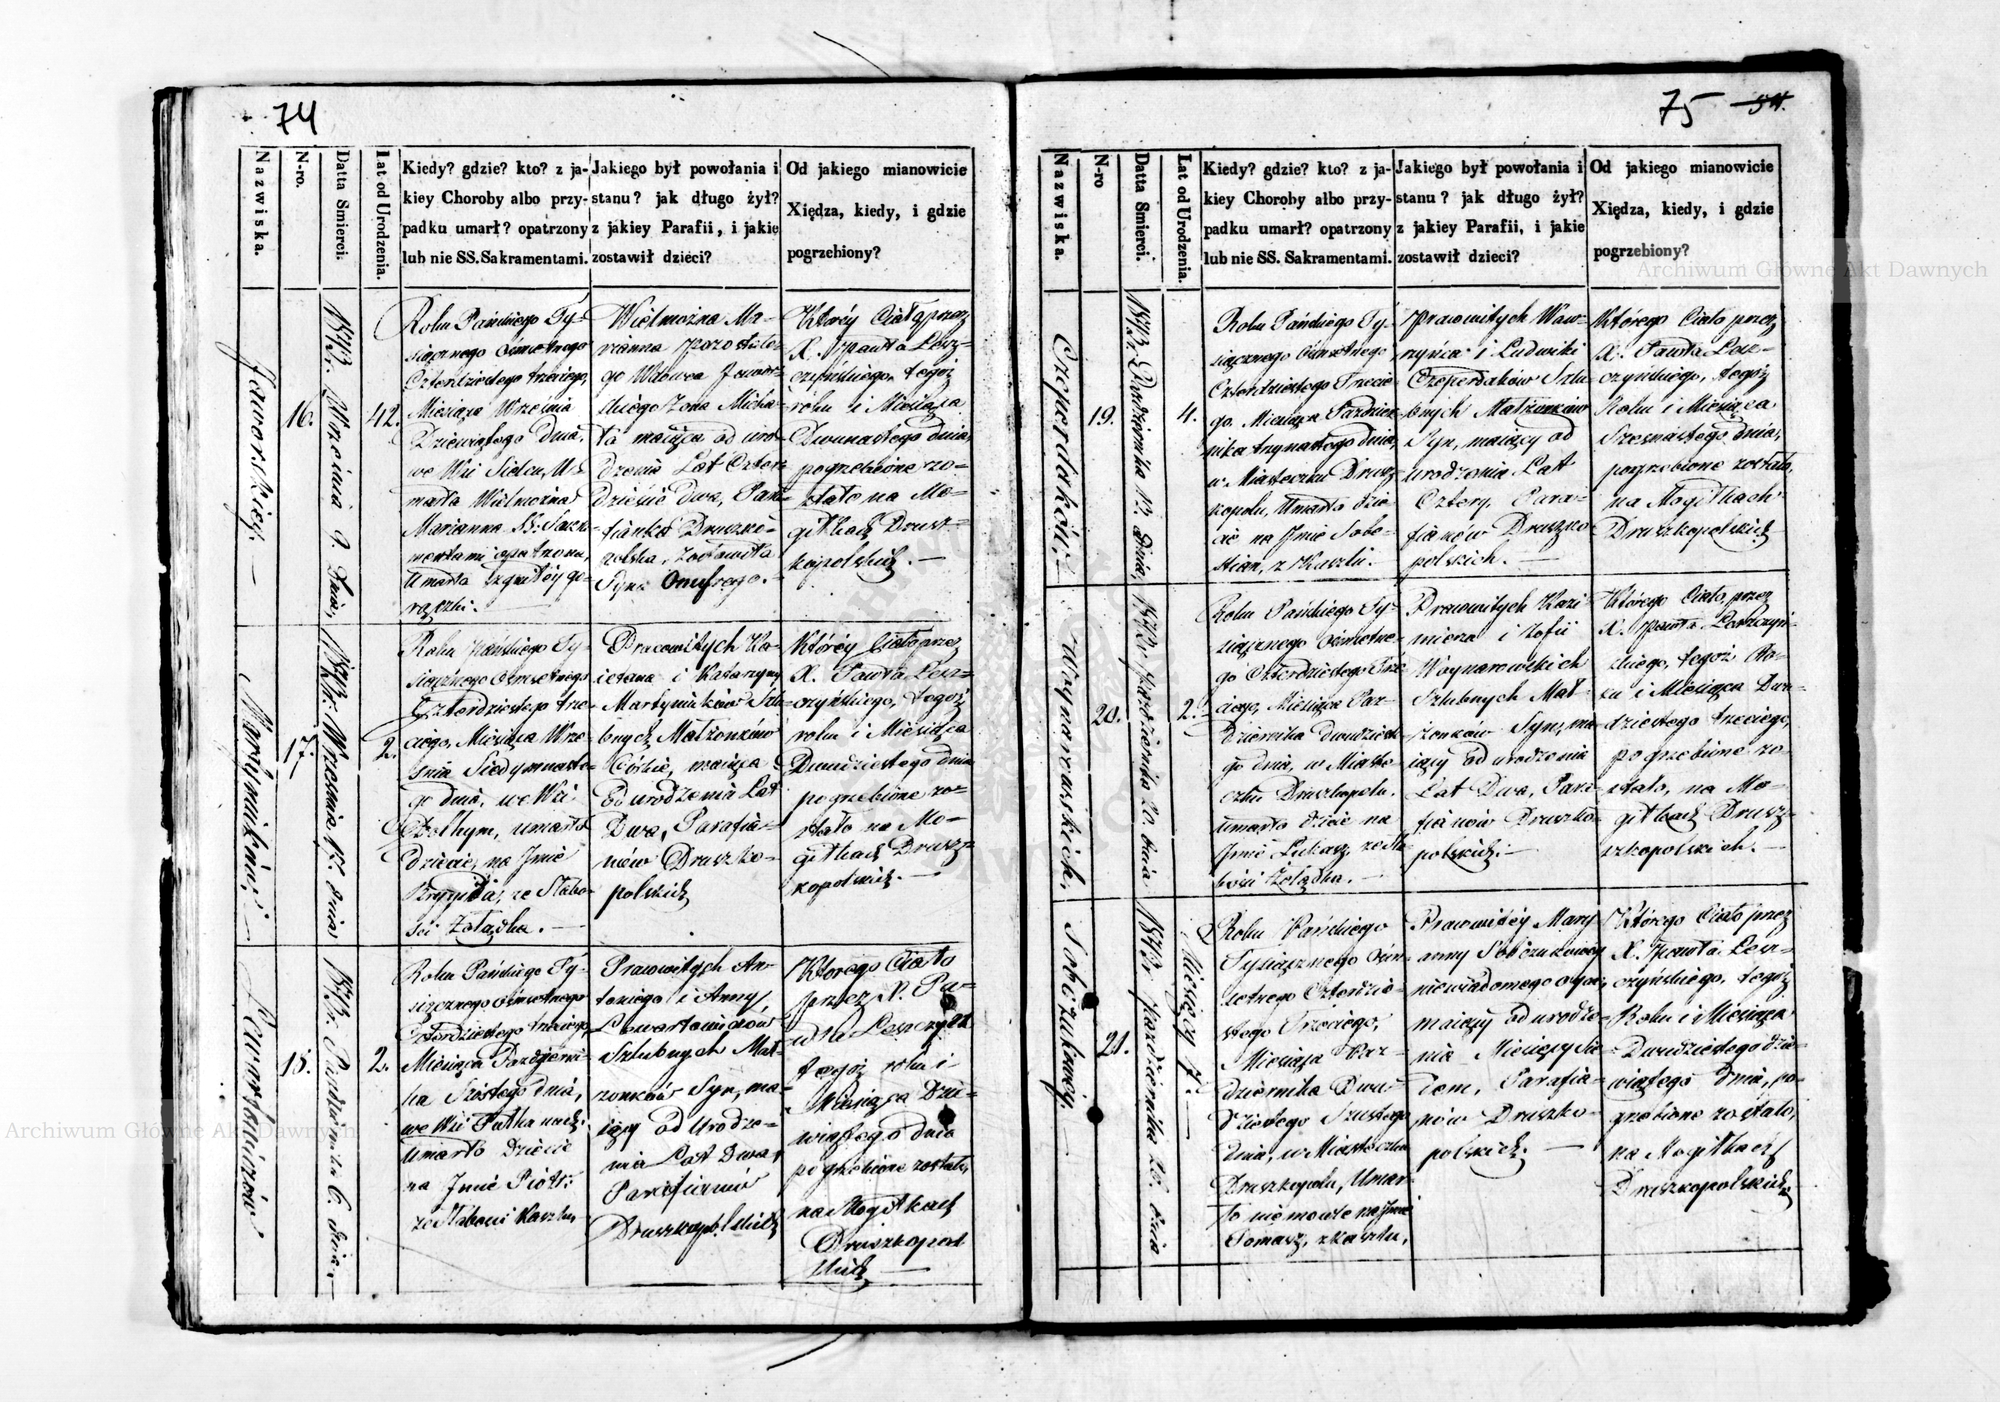 74
Nazwiska.
N-ro.
Datta Smierci.
Lat od Urodzenia.
Kiedy? gdzie? kto? z ja-
kiey Choroby albo przy-
padku umarł? opatrzony
lub nie SS. Sakramentami.
Jakiego był powołania i
stanu? jak długo żył?
z jakiey Parafii, i jakie
zostawił dzieci?
Od jakiego mianowicie
Xiędza, kiedy, i gdzie
pogrzebiony?
Jaworskiey.
16.
1843r. Września 9. dnia,
42.
Roku Pańskiego Ty-
siącznego ośmsetnego
Czterdziestego trzeciego,
Miesiąca Września
Dziewiątego dnia,
we Wsi Sielcu, U-
marła Wielmożna
Marianna SS: Sakra-
mentami opatrzona,
Umarła z gorą-
rączki.
Wielmożna Ma-
rianna pozostałe-
go Wdowca Jawor-
skiego Żona Micha-
ła maiąca od uro-
dzenia Lat Czter-
dzieście dwa, Para-
fianka Druszko-
polska, zostawiła
Syna Onufrego.
Którey Ciało przez
X. Pawła Lesz-
czyńskiego, tegoż
roku i Miesiąca
Dwunastego dnia,
pogrzebione zo-
stało na Mo-
giłkach Drusz-
kopolskich.
Martyniuków.
17.
1843r. Września 17. dnia
2.
Roku Pańskiego Ty-
siącznego Ośmsetnego
Czterdziestego trze-
ciego, Miesiąca Wrze-
śnia Siedymnaste-
go dnia, we Wsi
umarło
dziecie, na Jmie
Brygida, ze Słabo-
ści Żołądka.
Pracowitych Ka-
ietana i Katarzyny
Martyniuków Szlu-
bnych Małżonków
Córka, maiąca
Od urodzenia Lat
Dwa, Parafia-
nów Druszko-
polskich
Którey Ciało przez
X. Pawła Lesz-
czyńskiego, tegoż
roku i Miesiąca
Dwudziestego dnia
pogrzebione zo-
stało na Mo-
giłkach Drusz-
kopolskich.
Lewartowiczów
18.
1843r. Października 6. dnia.
2.
Roku Pańskiego Ty-
siącznego ośmsetnego
Czterdziestego trzeciego,
Miesiąca Październi-
ka Szóstego dnia,
we Wsi
Umarło Dziecie
na Jmie Piotr
ze Słabości Kaszlu,
Prawowitych An-
toniego i Anny
Lewartowiczów
Szlubnych Mał-
żonków Syn, ma-
iący od Urodze-
nia Lat Dwa,
Parafianów
Druszkopolskich
Którego Ciało
przez X. Pa-
wła Leszczyń.
tegoż roku i
Miesiąca Dzie-
wiątego dnia
pogrzebione zostało,
na Mogiłkach
Druszkopol-
skich
75 54.
Nazwiska.
N-ro
Datta Smierci.
Lat od Urodzenia.
Kiedy? gdzie? kto? z ja-
kiey Choroby albo przy-
padku umarł? opatrzony
lub nie SS. Sakramentami.
Jakiego był powołania i
stanu? jak długo żył?
z jakiey Parafii, i jakie
zostawił dzieci?
Od jakiego mianowicie
Xiędza, kiedy, i gdzie
pogrzebiony?
Czeperdaków.
19.
1843r. Października 13. dnia,
4.
Roku Pańskiego Ty-
siącznego Ośmsetnego
Czterdziestego Trzecie-
go, Miesiąca Paździer-
nika trzynastego dnia,
w Miasteczku Drusz-
kopolu, Umarło dzie-
cie na Jmie Seba-
stian, z Kaszlu.
Prawowitych Waw-
rzyńca i Ludwiki
Czeperdaków Szlu-
bnych Małżonków
Syn, maiący od
urodzenia Lat
Cztery, Para-
fianów Druszko-
polskich.
Którego Ciało przez
X. Pawła Lesz-
czyńskiego, tegoż
Roku i Miesiąca
Szesnastego dnia,
pogrzebione zostało,
na Mogiłkach
Druszkopolskich
Waynarowskich.
20.
1843r. Października 20. dnia
2.
Roku Pańskiego Ty-
siącznego Ośmsetne-
go Czterdziestego Trze-
ciego, Miesiąca Paź-
dziernika Dwudzieste-
go dnia, w Miaste-
czku Druszkopolu,
Umarło dziecie na
Jmie Łukasz, ze Sła-
bości Żołądka.
Prawowitych Kazi-
mierza i Zofii
Waynarowskich
Szlubnych Mał-
żonków Syn, ma-
iący od urodzenia
Lat Dwa, Para-
fianów Druszko-
polskich.
Którego Ciało, przez
X. Pawła Leszczyń-
skiego, tegoż Ro-
ku i Miesiąca Dwu-
dziestego trzeciego,
pogrzebione zo-
stało, na Mo-
giłkach Drusz-
szkopolskich.
Sobczukowey.
21.
1843r. Października 26. dnia
Miesięcy 7.
Roku Pańskiego
Tysiącznego Ośm-
setnego Czterdzie-
stego Trzeciego,
Miesiąca Paź-
dziernika Dwu-
dziestego Szóstego
dnia, w Miasteczku
Druszkopolu, Umar-
ło niemowle na Jmie
Tomasz, z kaszlu,
Prawowitey Mary-
anny Sobczukowey
niewiadomego oyca,
maiący od urodze-
nia Miesięcy Sie-
dem, Parafia-
nów Druszko-
polskich.
Którego Ciało przez
X. Pawła Lesz-
czyńskiego, tegoż
Roku i Miesiąca
Dwudziestego dzie-
wiątego dnia, po-
grzebione zostało,
na Mogiłkach
Druszkopolskich
Archiwum Główne Akt Dawnych
Archiwum Główne Akt Dawnych